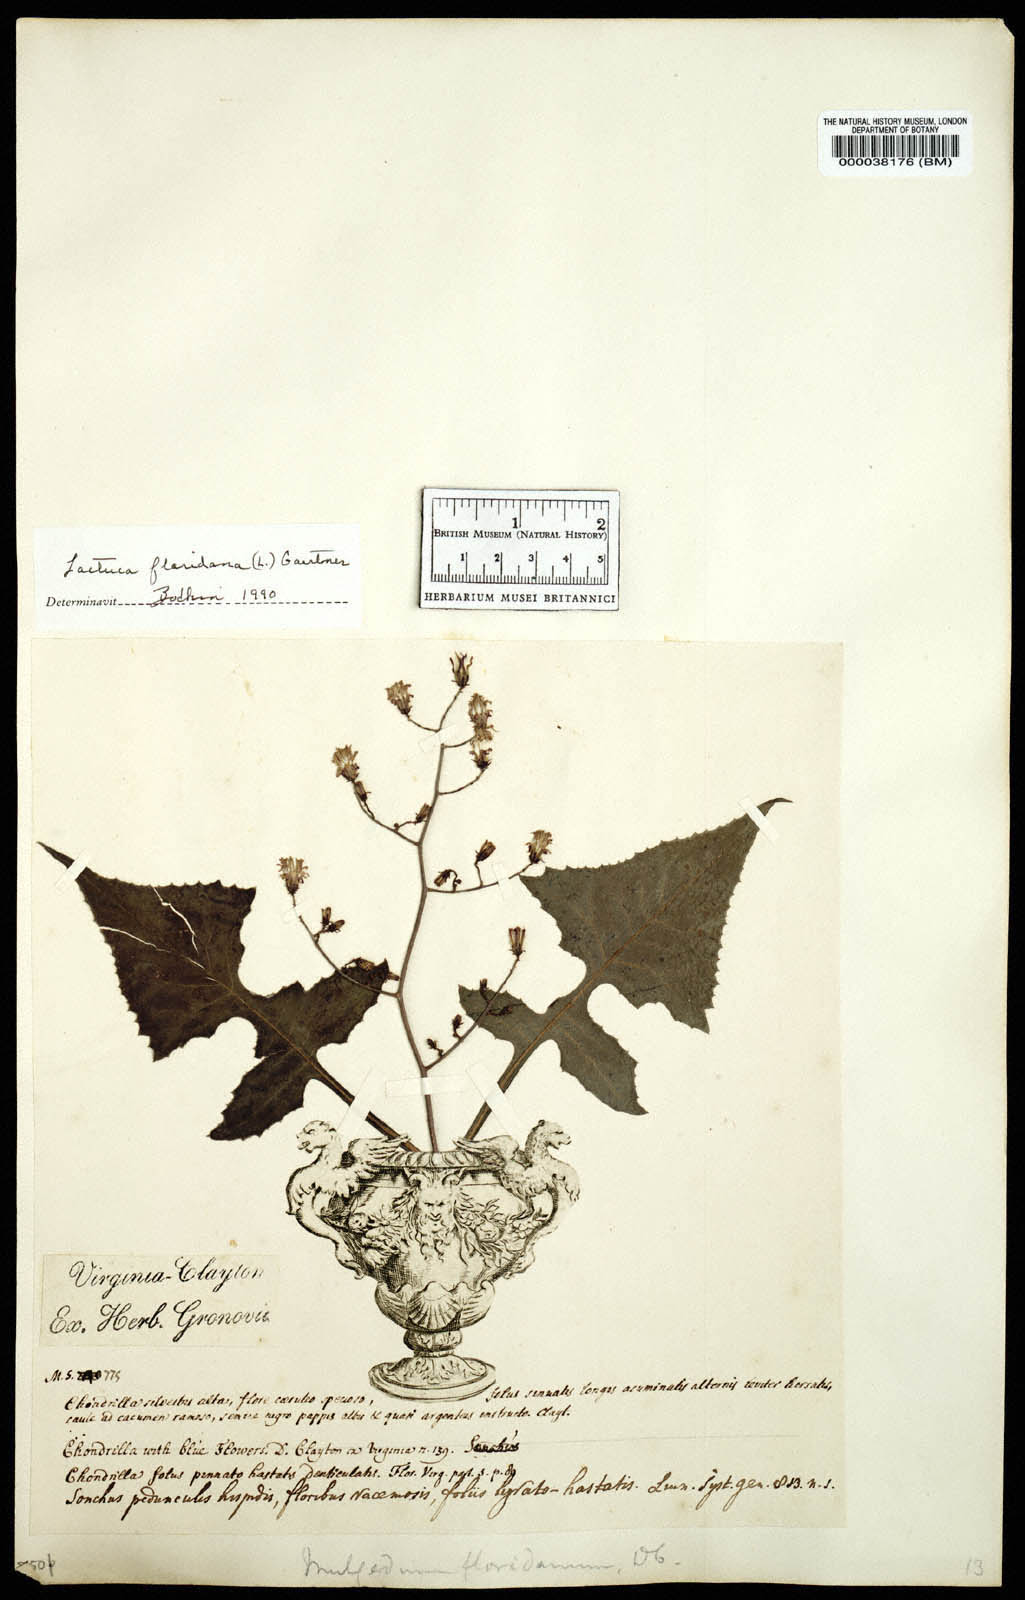 THE NATURAL HISTORY MUSEUM, LONDON
DEPARTMENT OF BOTANY
000038176 (BM)
1 2
BRITISH MUSEUM (NATURAL HISTORY)
1 2 3 4 5
HERBARIUM MUSEI BRITANNICI
Lactuca floridana (L.) Gaertner
Determinavit 1990
Virginia-Clayton
Ex. Herb. Gronovii
M.S. 775
Chondrilla silvestris alta, flore caeruleo specioso, foliis sinuatis longis acuminatis alternis leviter serratis,
caule ad cacumen ramoso, semine nigro pappis albis & quasi argenteis instructo. Clayt.
Chondrilla with blue Flowers. D. Clayton ex Virginia n. 139. Sonchus
Chondrilla foliis pinnato hastatis denticulatis. Flor. Virg. part. 2. p. 89
Sonchus pedunculis hispidis, floribus racemosis, foliis lyrato-hastatis. Linn. Syst. gen. 813. n. 5.
Mulgedium floridanum, DC.
13